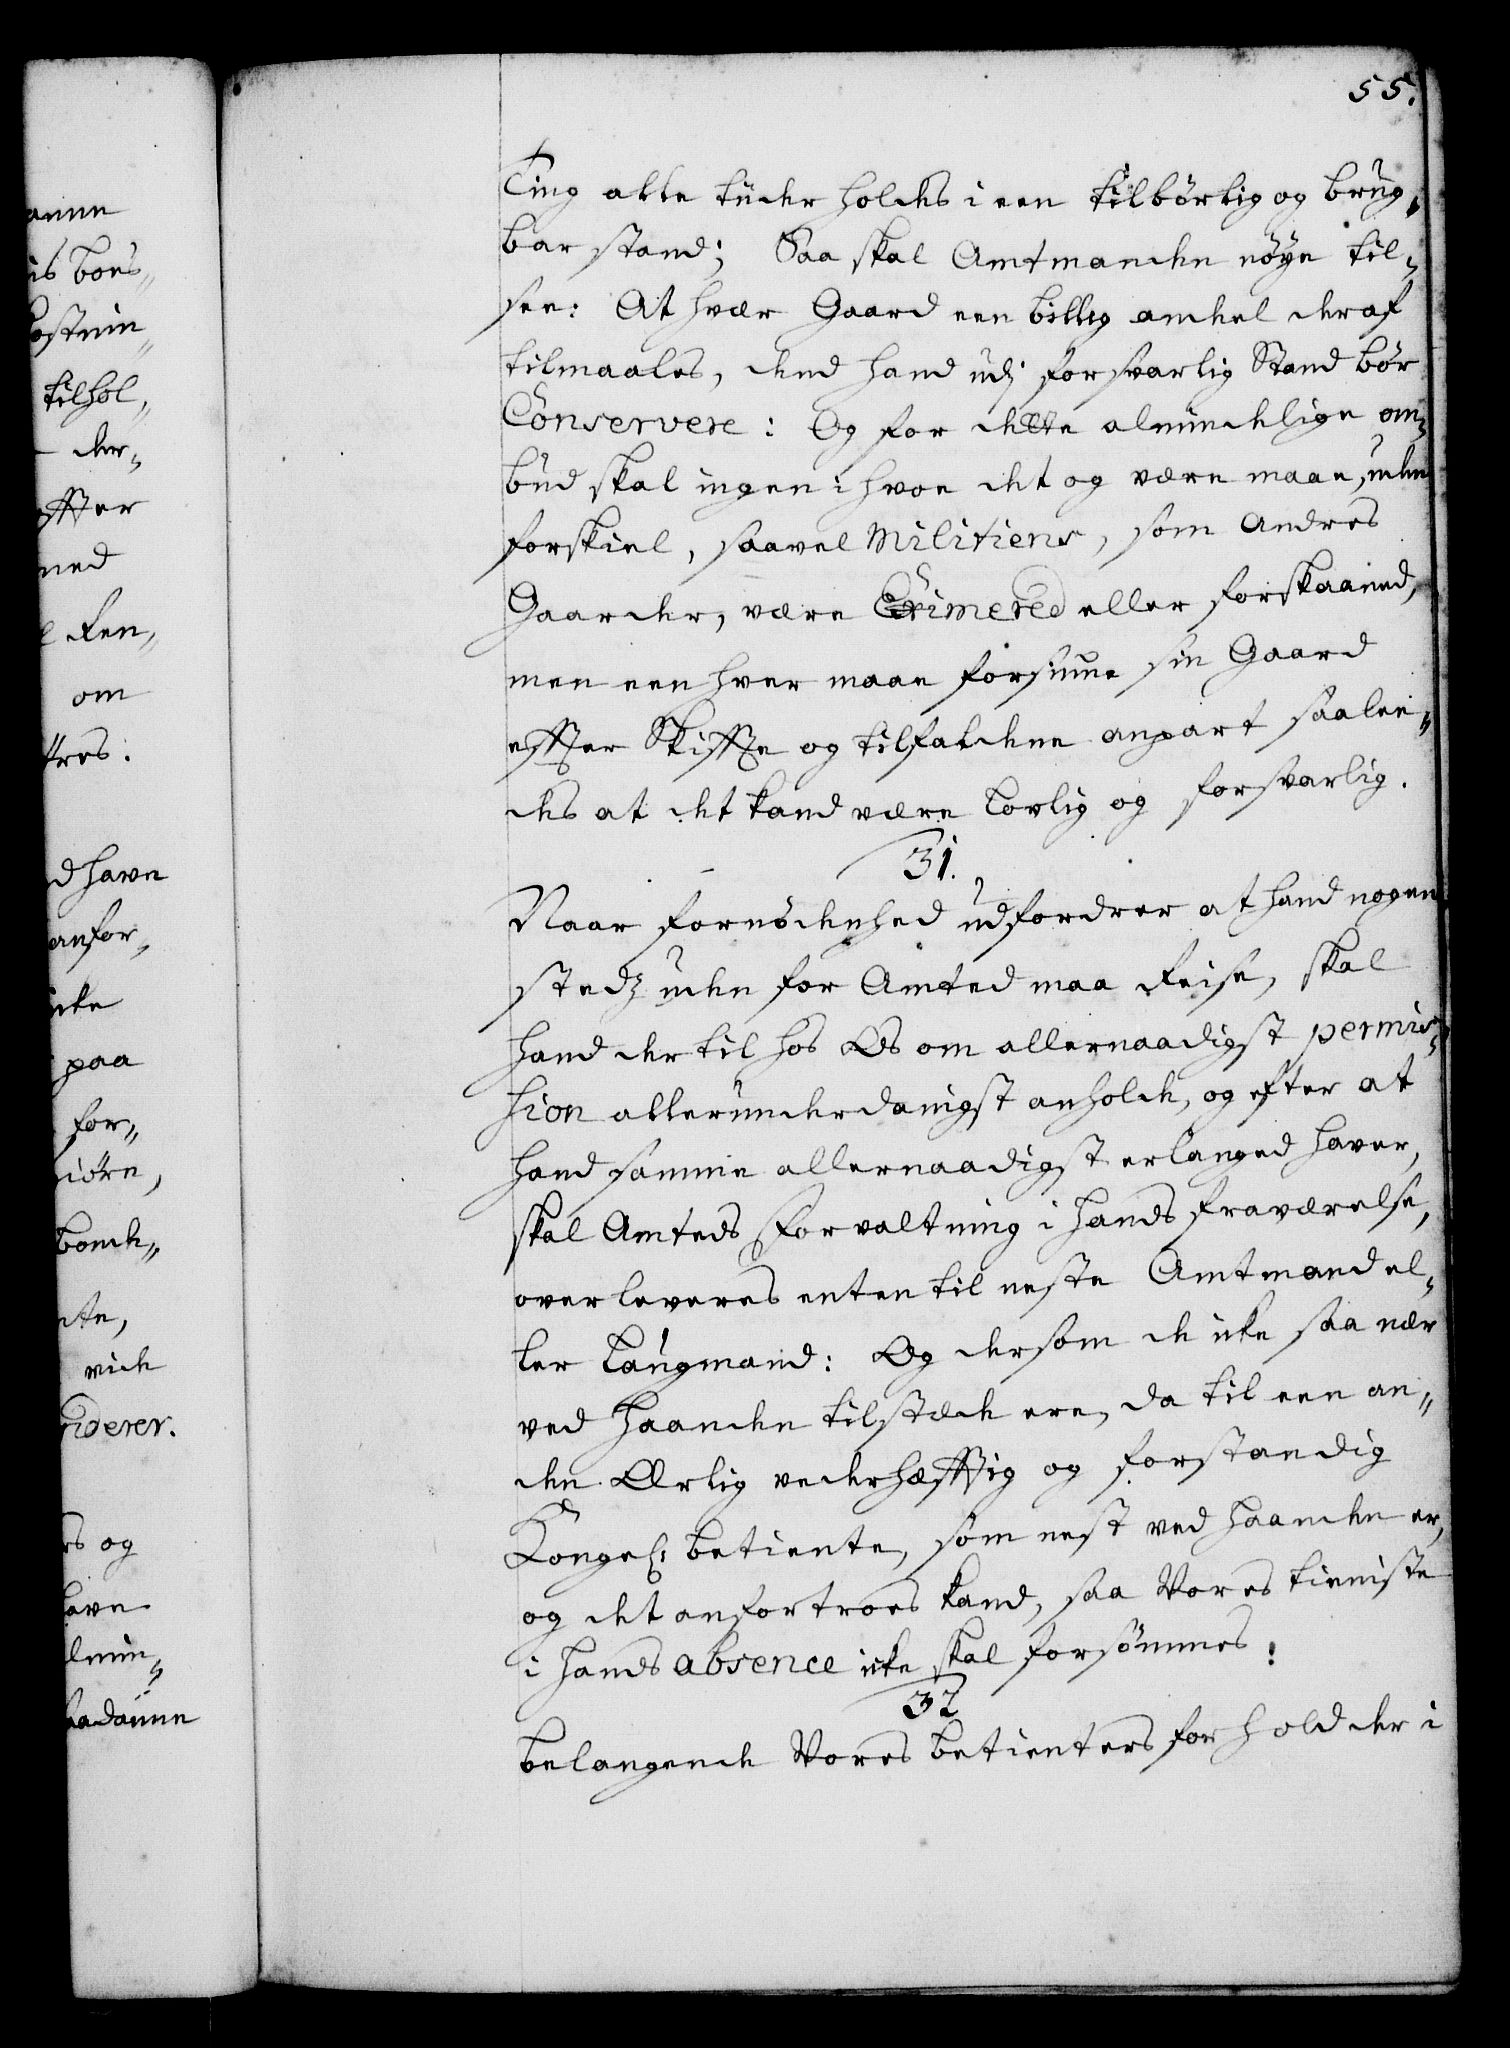 55.
Ting alle tiider holdes i een tilbörlig og brug,
bar stand; Saa skal Amtmanden nöye til-
see: At hvær Gaard een billig andeel deraf
tilmaales, dend hand udj forsvarlig Stand bör
Conservere: Og for dette almindelige om-
bud skal ingen i hvoe det og være maae, uden
forskiel, saavel Militiens, som Andres
Gaarder, være Eximered eller forskaaned,
men een hver maae forsiune sin Gaard
effter Skiffte og tilfaldene anpart saalee-
des at det kand være Lovlig og forsvarlig.
31.
Naar fornödenhed udfordrer at hand nogen
stedz uden for Amted maa Reise, skal
hand der til hos Os om allernaadigst permis-
sion allerunderdanigst anholde, og efter at
hand samme allernaadigst erlanged haver,
skal Amteds forvaltning i hands fraværelse,
overleveres enten til neste Amtmand el-
ler Laugmand: Og dersom de icke saa nær
ved Haanden tilstæde ere, da til een an-
den Ærlig vederhæfftig og forstandig
Kongel: betiente, som nest ved Haanden er,
og det anfortroes kand, saa Vores tieniste
i hands absence icke skal forsömmes:
32
belangende Vores betienters forhold der i
anne
is bons-
tilhol,
der-
effter
med
Ren,
om
tres.
d have
anfor-
icke
paa
for-
giöre,
bonde-
vide
iderer.
rs og
have
lmin-
saadanne